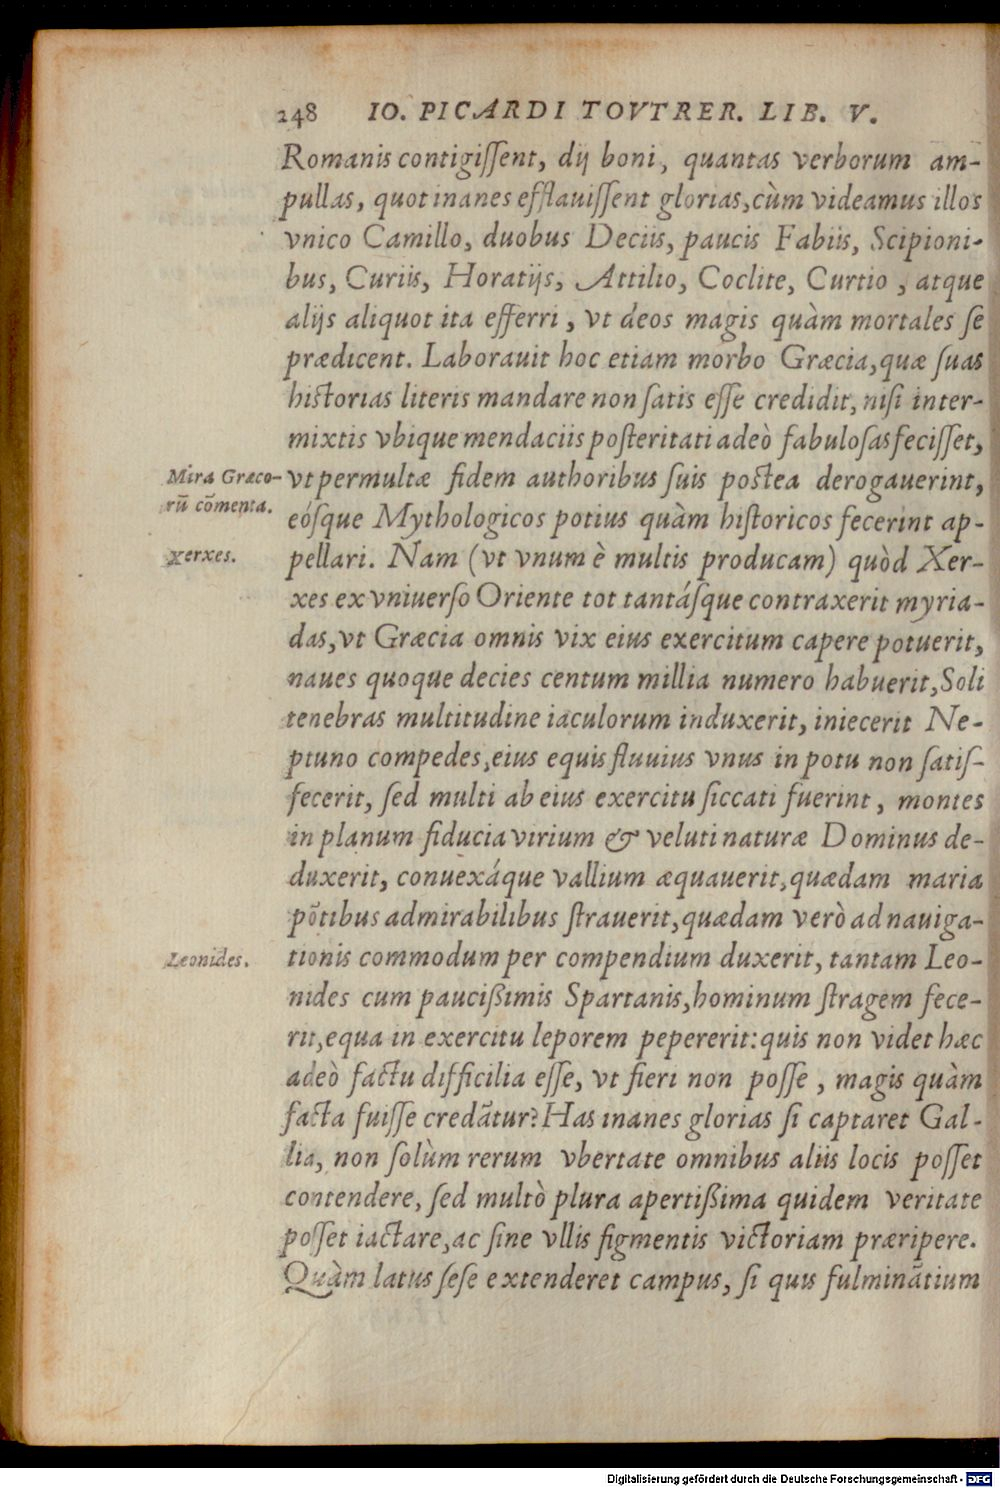 248 IO. PICARDI TOVTRER. LIB. V.
Romanis contigiſſent, dij boni, quantas verborum am-
pullas, quot inanes efflauiſſent glorias, cùm videamus illos
vnico Camillo, duobus Deciis, paucis Fabiis, Scipioni-
bus, Curiis, Horatijs, Attilio, Coclite, Curtio, atque
alijs aliquot ita efferri, vt deos magis quàm mortales ſe
prædicent. Laborauit hoc etiam morbo Græcia, quæ ſuas
hiſtorias literis mandare non ſatis eſſe credidit, niſi inter-
mixtis vbique mendaciis poſteritati adeò fabuloſas feciſſet,
Mira Græco-
rũ cõmenta.
vt permultæ fidem authoribus ſuis poſtea derogauerint,
eóſque Mythologicos potius quàm hiſtoricos fecerint ap-
Xerxes.
pellari. Nam (vt vnum è multis producam) quòd Xer-
xes ex vniuerſo Oriente tot tantáſque contraxerit myria-
das, vt Græcia omnis vix eius exercitum capere potuerit,
naues quoque decies centum millia numero habuerit, Soli
tenebras multitudine iaculorum induxerit, iniecerit Ne-
ptuno compedes, eius equis fluuius vnus in potu non ſatiſ-
fecerit, ſed multi ab eius exercitu ſiccati fuerint, montes
in planum fiducia virium & veluti naturæ Dominus de-
duxerit, conuexáque vallium æquauerit, quædam maria
põtibus admirabilibus ſtrauerit, quædam verò ad nauiga-
Leonides.
tionis commodum per compendium duxerit, tantam Leo-
nides cum pauciſsimis Spartanis, hominum ſtragem fece-
rit, equa in exercitu leporem pepererit: quis non videt hæc
adeò factu difficilia eſſe, vt fieri non poſſe, magis quàm
facta fuiſſe credãtur? Has inanes glorias ſi captaret Gal-
lia, non ſolùm rerum vbertate omnibus aliis locis poſſet
contendere, ſed multò plura apertiſsima quidem veritate
poſſet iactare, ac ſine vllis figmentis victoriam præripere.
Quàm latus ſeſe extenderet campus, ſi quis fulminãtium
Digitalisierung gefördert durch die Deutsche Forschungsgemeinschaft - DFG